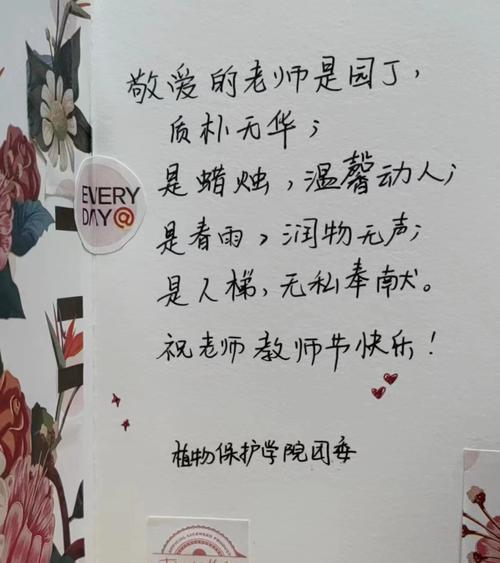 敬爱的老师是园丁，
质朴无华；
是蜡烛，温馨动人；
EVERY
DAY@
是春雨，润物无声；
是人梯，无私奉献。
祝老师教师节快乐！
植物保护学院团委